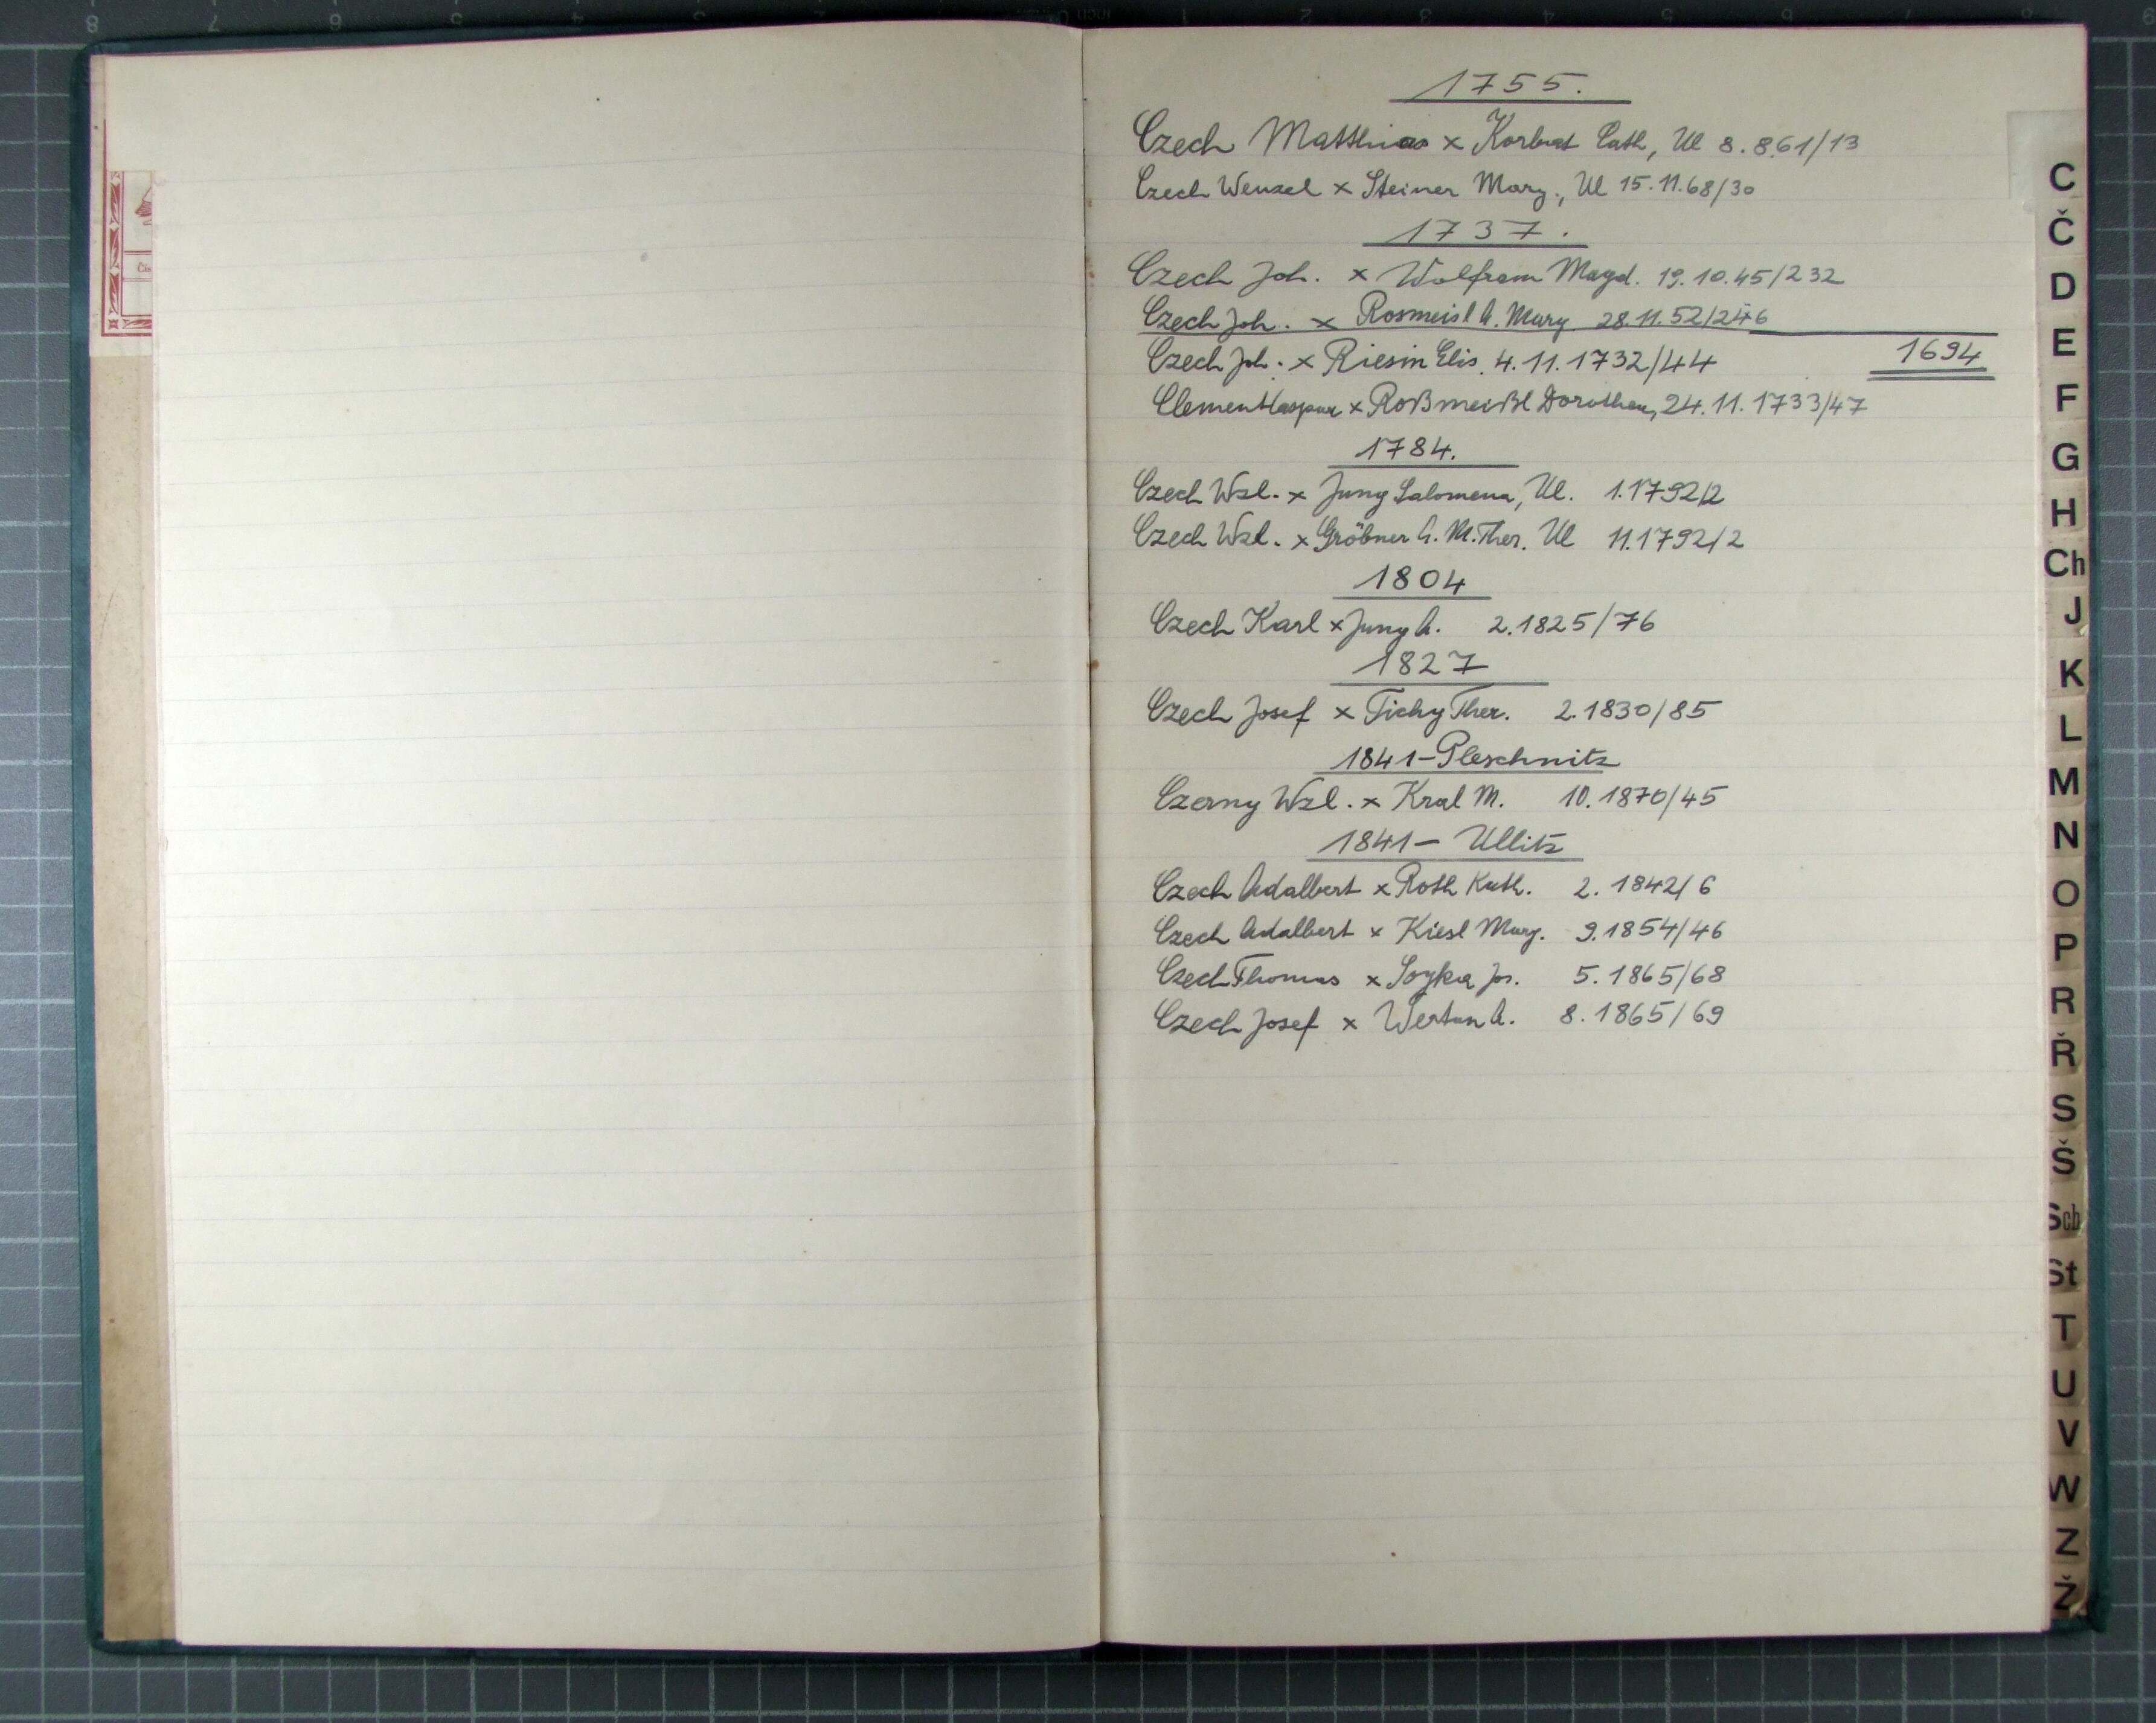 1755.
Czech Matthias x Korbat Cath, Ul 8.8.61/13
Czech Wenzel x Steiner Marg., Ul 15.11.68/30
1737.
Czech Joh. x Wolfram Magd. 19.10.45/232
Czech Joh. x Rosmeisl A. Marg 28.11.52/246
1694
Czech Joh. x Riesin Elis. 4.11.1732/44
Clement Caspar x Roßmeißl Dorothea, 24.11.1733/47
1784.
Czech Wzl. x Jung Salomena, Ul. 1.1792/2
Czech Wzl. x Gröbner A. M. Ther. Ul 11.1792/2
1804
Czech Karl x Jung A. 2.1825/76
1827
Czech Josef x Tichy Ther. 2.1830/85
1841-Pleschnitz
Czerny Wzl. x Kral M. 10.1870/45
1841- Ullitz
Czech Adalbert x Roth Kath. 2.1842/6
Czech Adalbert x Kiesl Marg. 9.1854/46
Czech Thomas x Soyka Jos. 5.1865/68
Czech Josef x Wertun A. 8.1865/69
C
Č
D
E
F
G
H
Ch
J
K
L
M
N
O
P
R
Ř
S
Š
Sch
St
T
U
V
W
Z
Ž